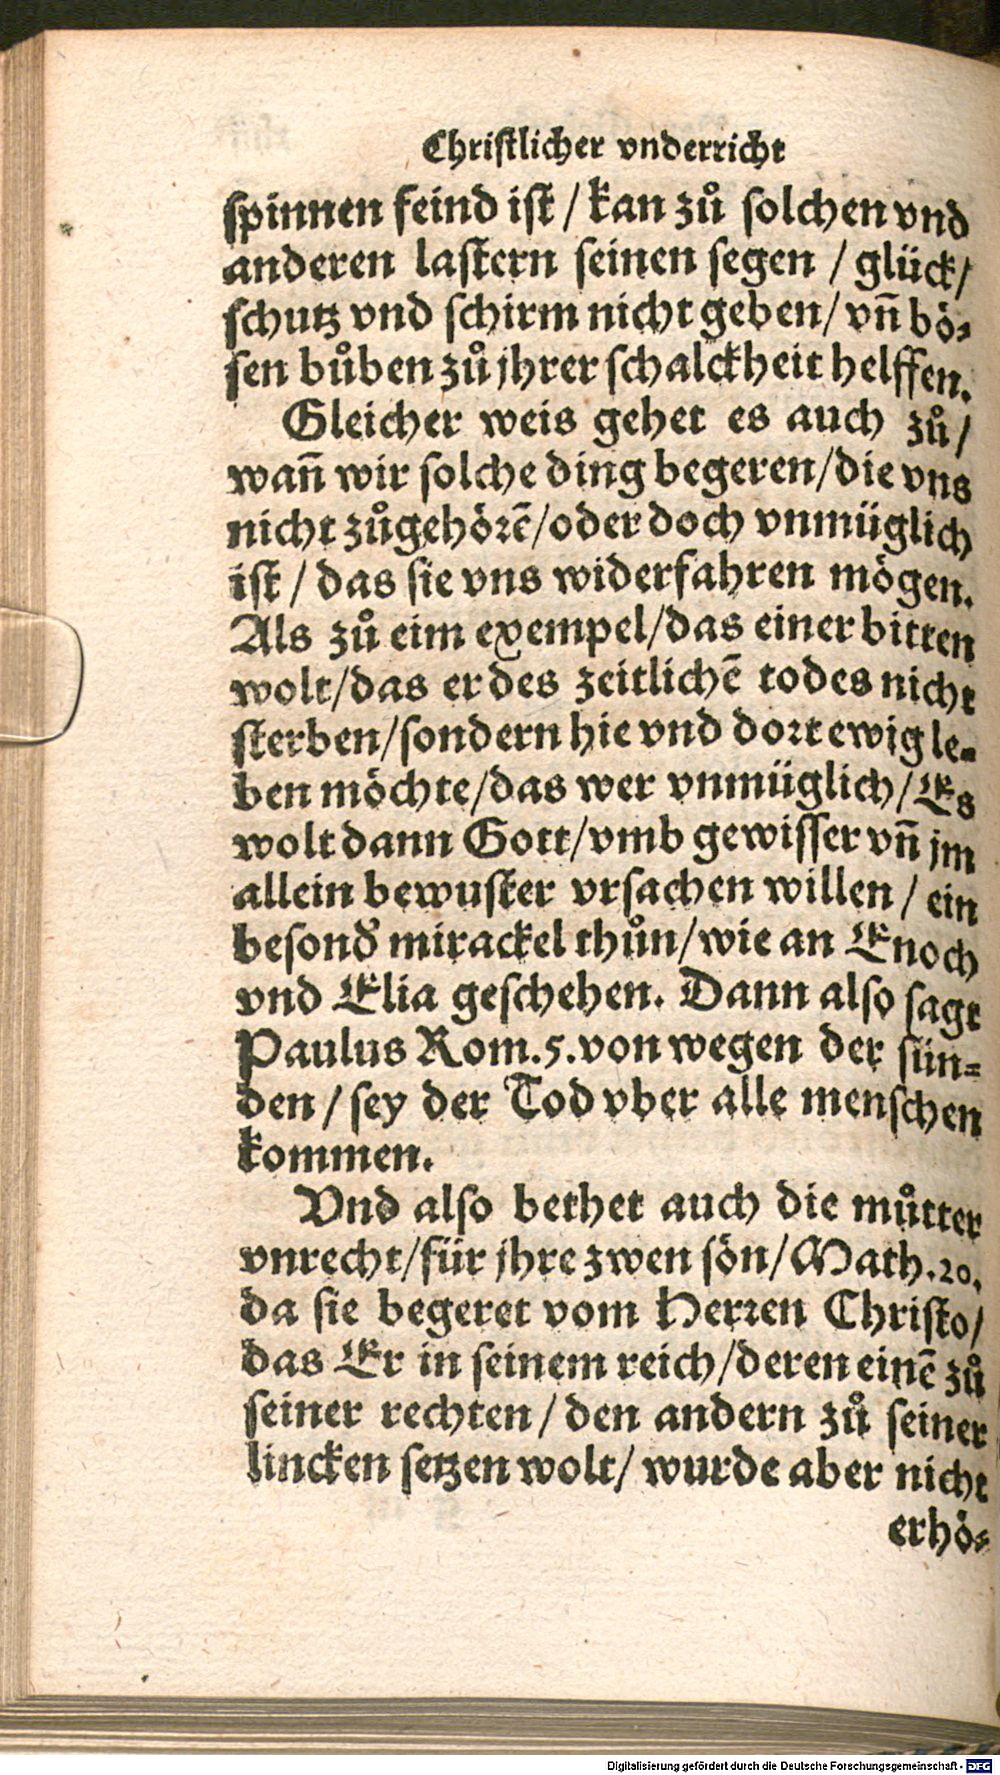 Christlicher vnderricht
spinnen feind ist / kan zů solchen vnd
anderen lastern seinen segen / glück/
schutz vnd schirm nicht geben/ vñ bö⸗
sen bůben zů jhrer schalckheit helffen.
Gleicher weis gehet es auch zů/
wañ wir solche ding begeren/die vns
nicht zůgehörẽ/oder doch vnmüglich
ist / das sie vns widerfahren mögen.
Als zů eim exempel/das einer bitten
wolt/das er des zeitlichẽ todes nicht
sterben/sondern hie vnd dort ewig le⸗
ben möchte/das wer vnmüglich/Es
wolt dann Gott/vmb gewisser vñ jm
allein bewuster vrsachen willen / ein
besonď mirackel thůn/wie an Enoch
vnd Elia geschehen. Dann also sagt
Paulus Rom.5.von wegen der sün⸗
den / sey der Tod vber alle menschen
kommen.
Vnd also bethet auch die můtter
vnrecht/für jhre zwen sön/Math.20.
da sie begeret vom Herren Christo/
das Er in seinem reich/deren einẽ zů
seiner rechten/den andern zů seiner
lincken setzen wolt/ wurde aber nicht
erhö⸗
Digitalisierung gefördert durch die Deutsche Forschungsgemeinschaft - DFG